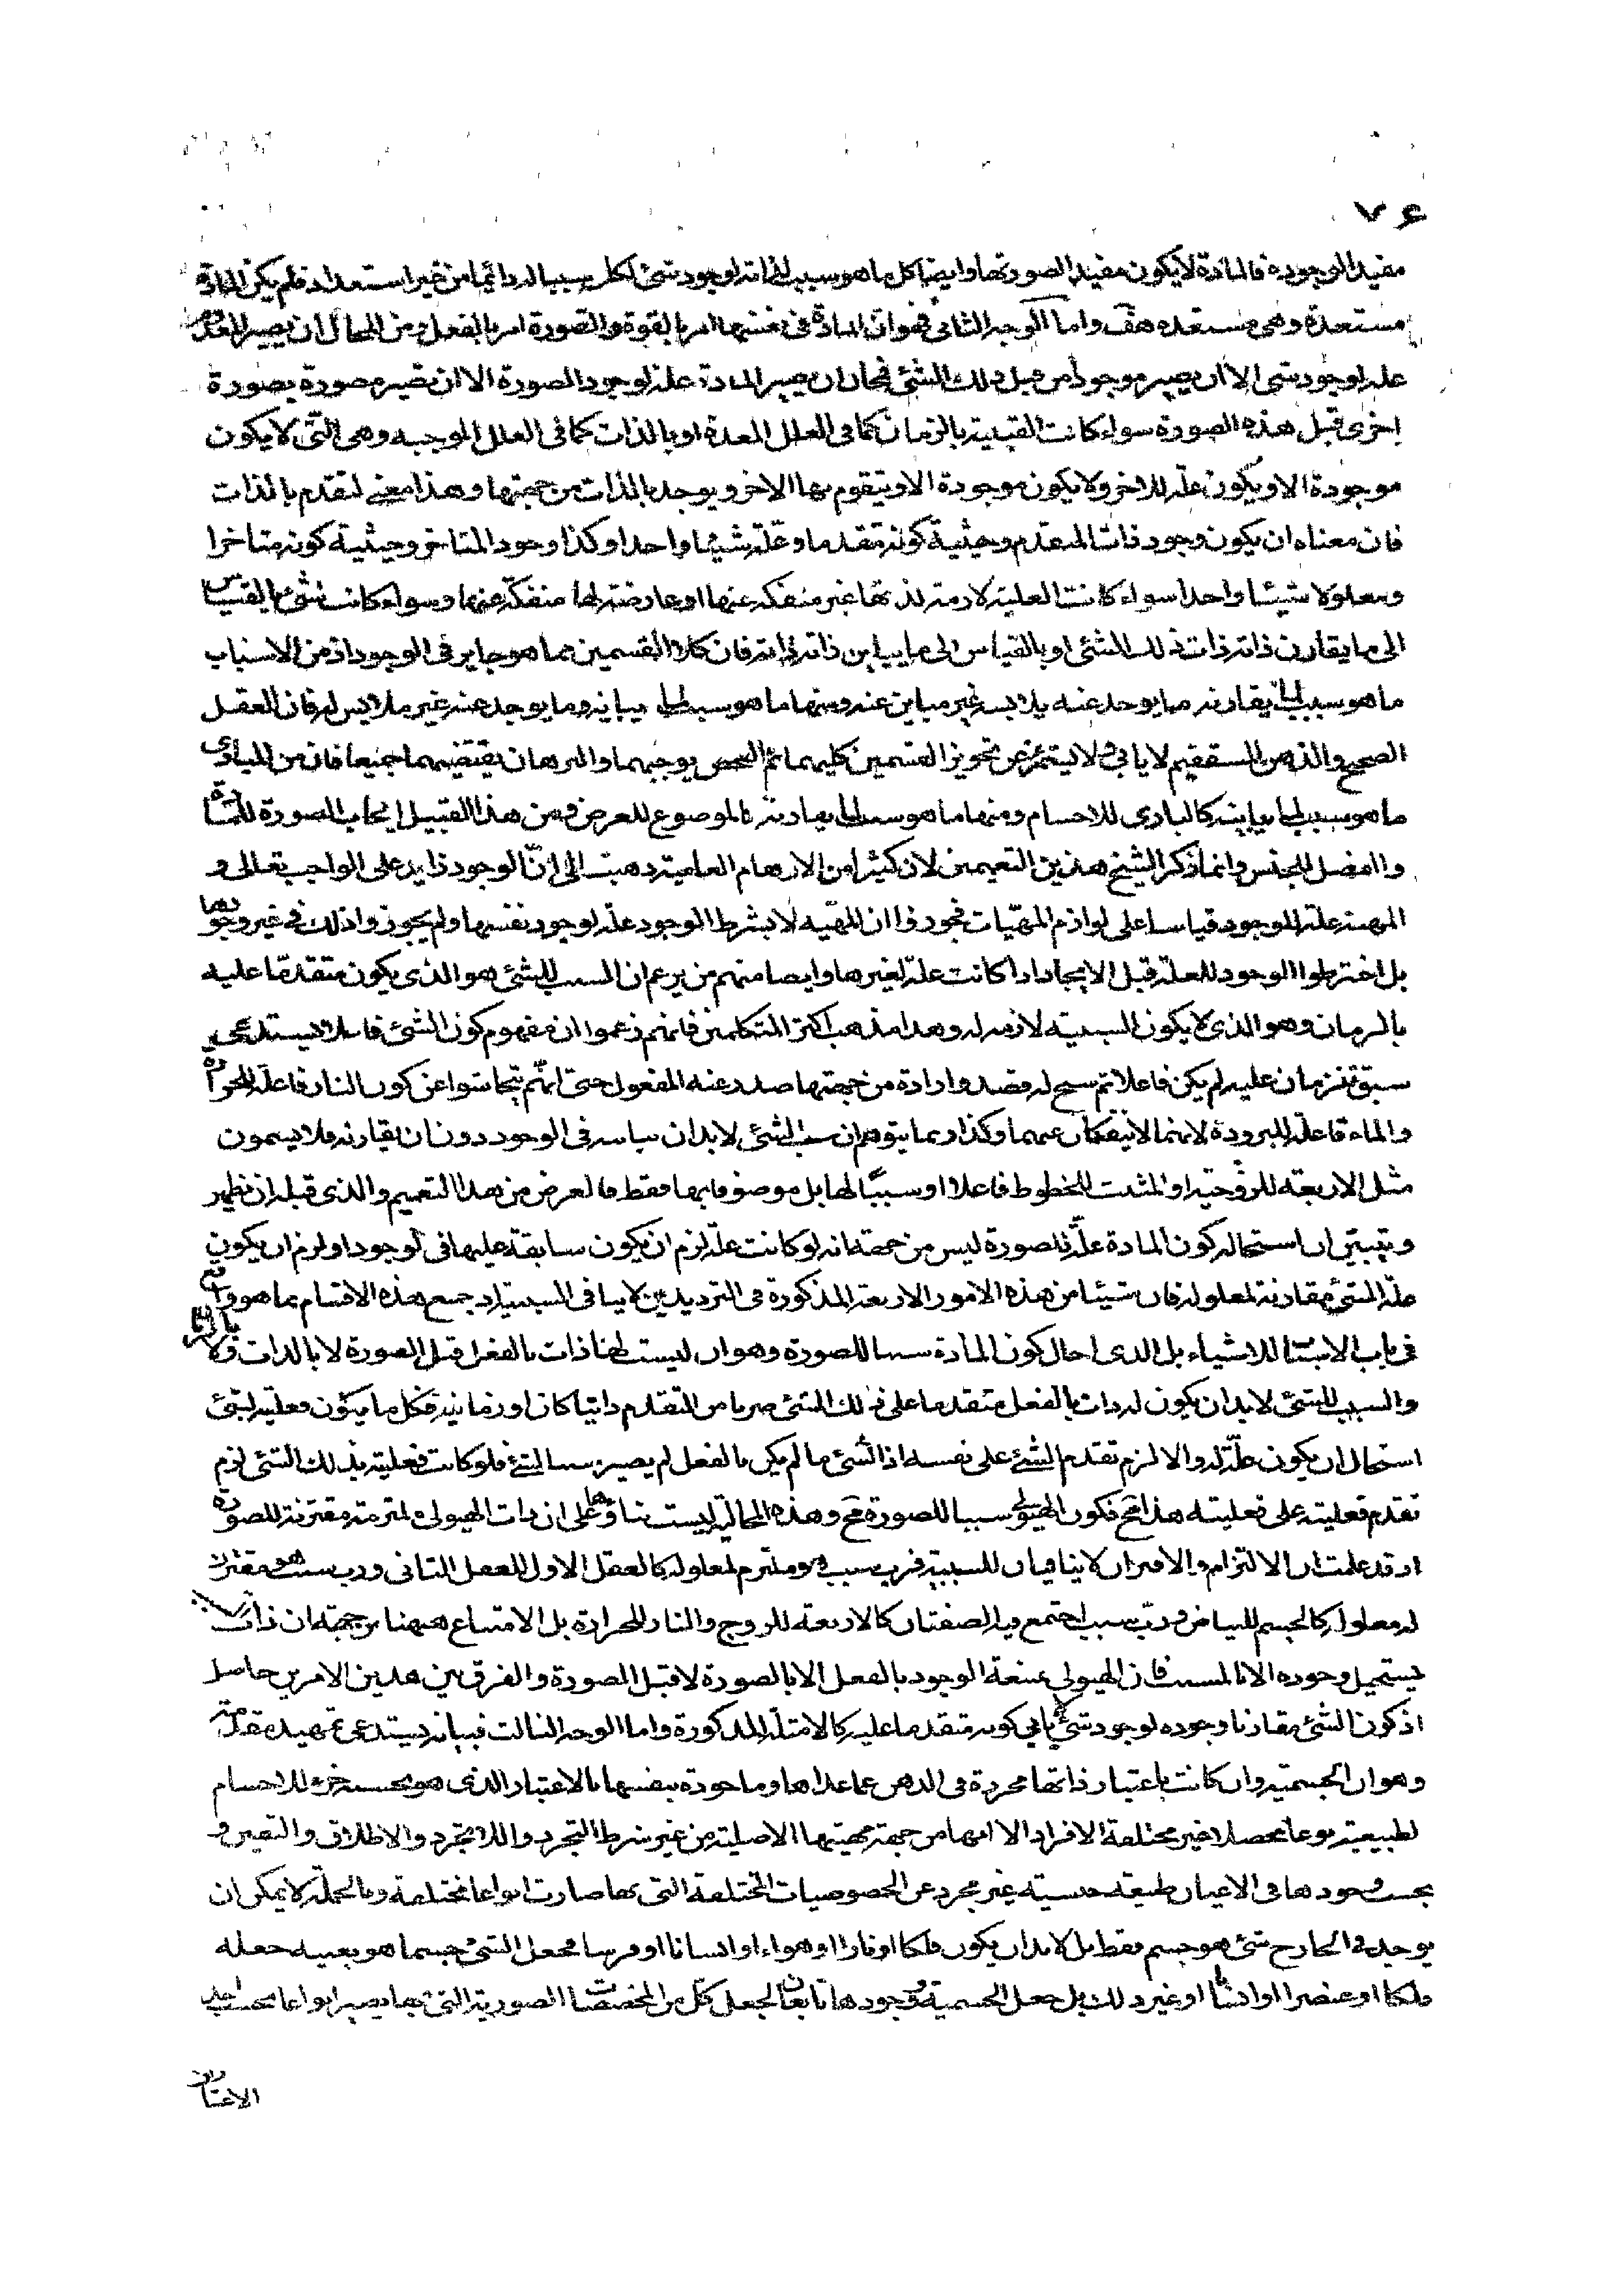 ٧۶
مفيدا لوجوده فالمادة لا يكون مفيدا لصورتها وايضا كل ما هو سبب لذاته لوجود شئ لكان سببا له دائما من غير استعداد فلم يكن المادة
مستعدة وهى مستعده هف واما الوجه الثانى فهو ان المادة فى نفسها امر بالقوة والصورة امر بالفعل ومن المحال ان يصير المعدوم
علة لوجود شى الا ان يصير موجودا من قبل ذلك الشئ فمحال ان يصير المادة علة لوجود الصورة الا ان تصير مصورة بصورة
اخرى قبل هذه الصورة سواء كانت القبلية بالزمان كما فى العلل المعدة او بالذات كما فى العلل الموجبه وهى التى لا يكون
موجودة الا ويكون علة للاخر ولا يكون موجودة الا ويتقوم بها الاخر ويوجد بالذات من جهتها وهذا معنى التقدم بالذات
فان معناه ان يكون وجود ذات المتقدم وحيثية كونه متقدما وعلة شيئا واحدا وكذا وجود المتاخر وحيثية كونه متاخرا
ومعلولا شيئا واحدا سواء كانت العلية لازمة لذاتها غير منفكة عنها او عارضة لها منفكة عنها وسواء كانت لشئ بالقياس
الى ما يقارن ذاته ذات ذلك الشئ او بالقياس الى ما يباين ذاته ذاته فان كلا القسمين مما هو جايز فى الوجود اذ من الاسباب
ما هو سبب لما يقارنه مما يوجد عنه يلابسه غير مباين عنه ومنها ما هو سبب لما يباينه وما يوجد عنه غير ملابس له فان العقل
الصحيح والذهن المستقيم لا يابى ولا يشمئز عن تجويز القسمين كليهما ثم الفحص يوجبهما والبرهان يقتضيهما جميعا فان من المبادى
ما هو سبب لما يباينه كالبارى للاجسام ومنها ما هو سبب لما يقارنه كالموضوع للعرض ومن هذا القبيل ايجاب الصورة للمادة
والفصل للجنس وانما ذكر الشيخ هذين التعميمين لان كثيرا من الاوهام العامية ذهبت الى ان الوجود زايد على الواجب تعالى و
المهية علة للوجود قياسا على لوازم المهيات فجوزوا ان المهيه لا بشرط الوجود علة لوجود نفسها ولم يجوزوا ذلك فى غير وجودها
بل اشترطوا الوجود للعلة قبل الايجاد اذا كانت علة لغيرها وايضا منهم من يزعم ان السبب للشئ هو الذى يكون متقدما عليه
بالزمان وهو الذى لا يكون السببية لازمة له وهذا مذهب اكثر المتكلمين فانهم زعموا ان مفهوم كون الشئ فاعلا يستدعى
سبق زمان عليه لم يكن فاعلا ثم سنح له قصد وارادة من جهتها صدر عنه المفعول حتى انهم يتحاشوا عن كون النار فاعلة للحرارة
والماء فاعلة للبرودة لانهما لا ينفكان عنهما وكذا ربما يتوهم ان سبب الشئ لا بد ان يباينه فى الوجود دون ان يقارنه فلا يسمون
مثل الاربعة للزوجية او المثلث للخطوط فاعلا او سببا لها بل موصوفا بها فقط فالغرض من هذا التعميم والذى قبله ان يظهر
ويتبين ان استحالة كون المادة علة للصورة ليس من جهة انه لو كانت علة لزم ان يكون سابقة عليها فى الوجود او لزم ان يكون
علة الشئ مقارنة لمعلوله فان شيئا من هذه الامور الاربعة المذكورة فى الترديدين لا ينافى السببية اذ جميع هذه الاقسام مما هو واقع
فى باب الاسباب للاشياء بل الذى احال كون المادة سببا للصورة وهو ان ليست لها ذات بالفعل قبل الصورة لا بالذات ولا بالزمان
والسبب للشئ لا بد ان يكون له ذات بالفعل متقدما على ذلك الشئ ضربا من التقدم ذاتيا كان او زمانيا فكل ما يكون فعليته لشئ
استحال ان يكون علة له والا لزم تقدم الشئ على نفسه اذ الشئ ما لم يكن بالفعل لم يصير سببا لشئ فلو كانت فعليته بذلك الشئ لزم
تقدم فعليته على فعليته هذا مح فكون الهيولى سببا للصورة مح وهذه المحالية ليست بناؤها على ان ذات الهيولى ملتزمة مقترنة للصورة
اذ قد علمت ان الالتزام والاقتران لا ينافيان للسببية فرب سبب هو ملتزم لمعلوله كالعقل الاول للعقل الثانى ورب سبب هو مقترن
له معلوله كالجسم للبياض ورب سبب اجتمع فيه الصفتان كالاربعة للزوج والنار للحرارة بل الامتناع هيهنا من جهة ان ذات السبب
يستحيل وجوده الا بالمسبب فان الهيولى ممتنعة الوجود بالفعل الا بالصورة لا قبل الصورة والفرق بين هذين الامرين حاصل
اذ كون الشئ مقارنا وجوده لوجود شئ لا يابى كونه متقدما عليه كالامثلة المذكورة واما الوجه الثالث فبيانه يستدعى تمهيد مقدمة
وهو ان الجسمية وان كانت باعتبار ذاتها مجردة فى الذهن عما عداها وماخوذة بنفسها بالاعتبار الذى هو بحسبه جزء للاجسام
لطبيعية نوعا محصلا غير مختلفة الافراد الا انها من جهة مهيتها الاصلية من غير شرط التجرد واللا تجرد والاطلاق والتعين و
بحسب وجودها فى الاعيان طبيعة جنسية غير مجرد عن الخصوصيات المختلفة التى بها صارت انواعا مختلفة وبالجملة لا يمكن ان
يوجد فى الخارج شئ هو جسم فقط بل لا بد ان يكون فلكا او نارا او هواء او انسانا او فرسا فجعل الشئ جسما هو بعينه جعله
فلكا او عنصرا او انسانا او غير ذلك بل جعل الجسمية ووجودها تابعان لجعل كل من المخصصات الصورية التى بها يصير انواعا بحسب احد
الاعتبارين